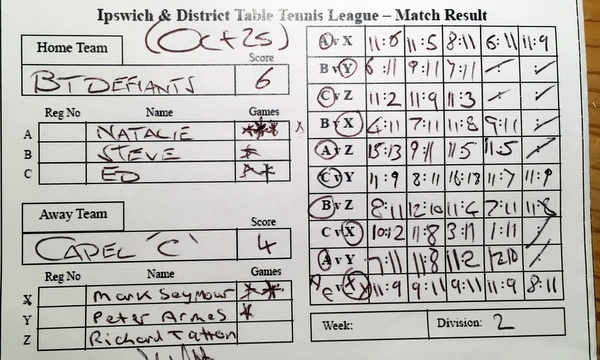 Ipswich & District Table Tennis League – Match Result
(Oct 25)
Home Team
Score
BT DEFIANTS 6
Reg No Name Games
A NATALIE ***
B STEVE *
C ED **
Away Team
Score
CAPEL 'C' 4
Reg No Name Games
X Mark Seymour **
Y Peter Armes *
Z Richard Tatton
A v X 11:6 11:5 8:11 6:11 11:9
B v Y 6:11 9:11 7:11 : :
C v Z 11:2 11:9 11:3 : :
B v X 4:11 7:11 11:8 9:11 :
A v Z 15:13 9:11 11:5 11:5 :
C v Y 11:9 8:11 16:13 11:7 11:9
B v Z 8:11 12:10 11:4 7:11 11:8
C v X 10:12 11:8 3:11 1:11 :
A v Y 7:11 11:8 11:2 12:10 :
11:9 9:11 9:11 11:9 8:11
Week: Division: 2